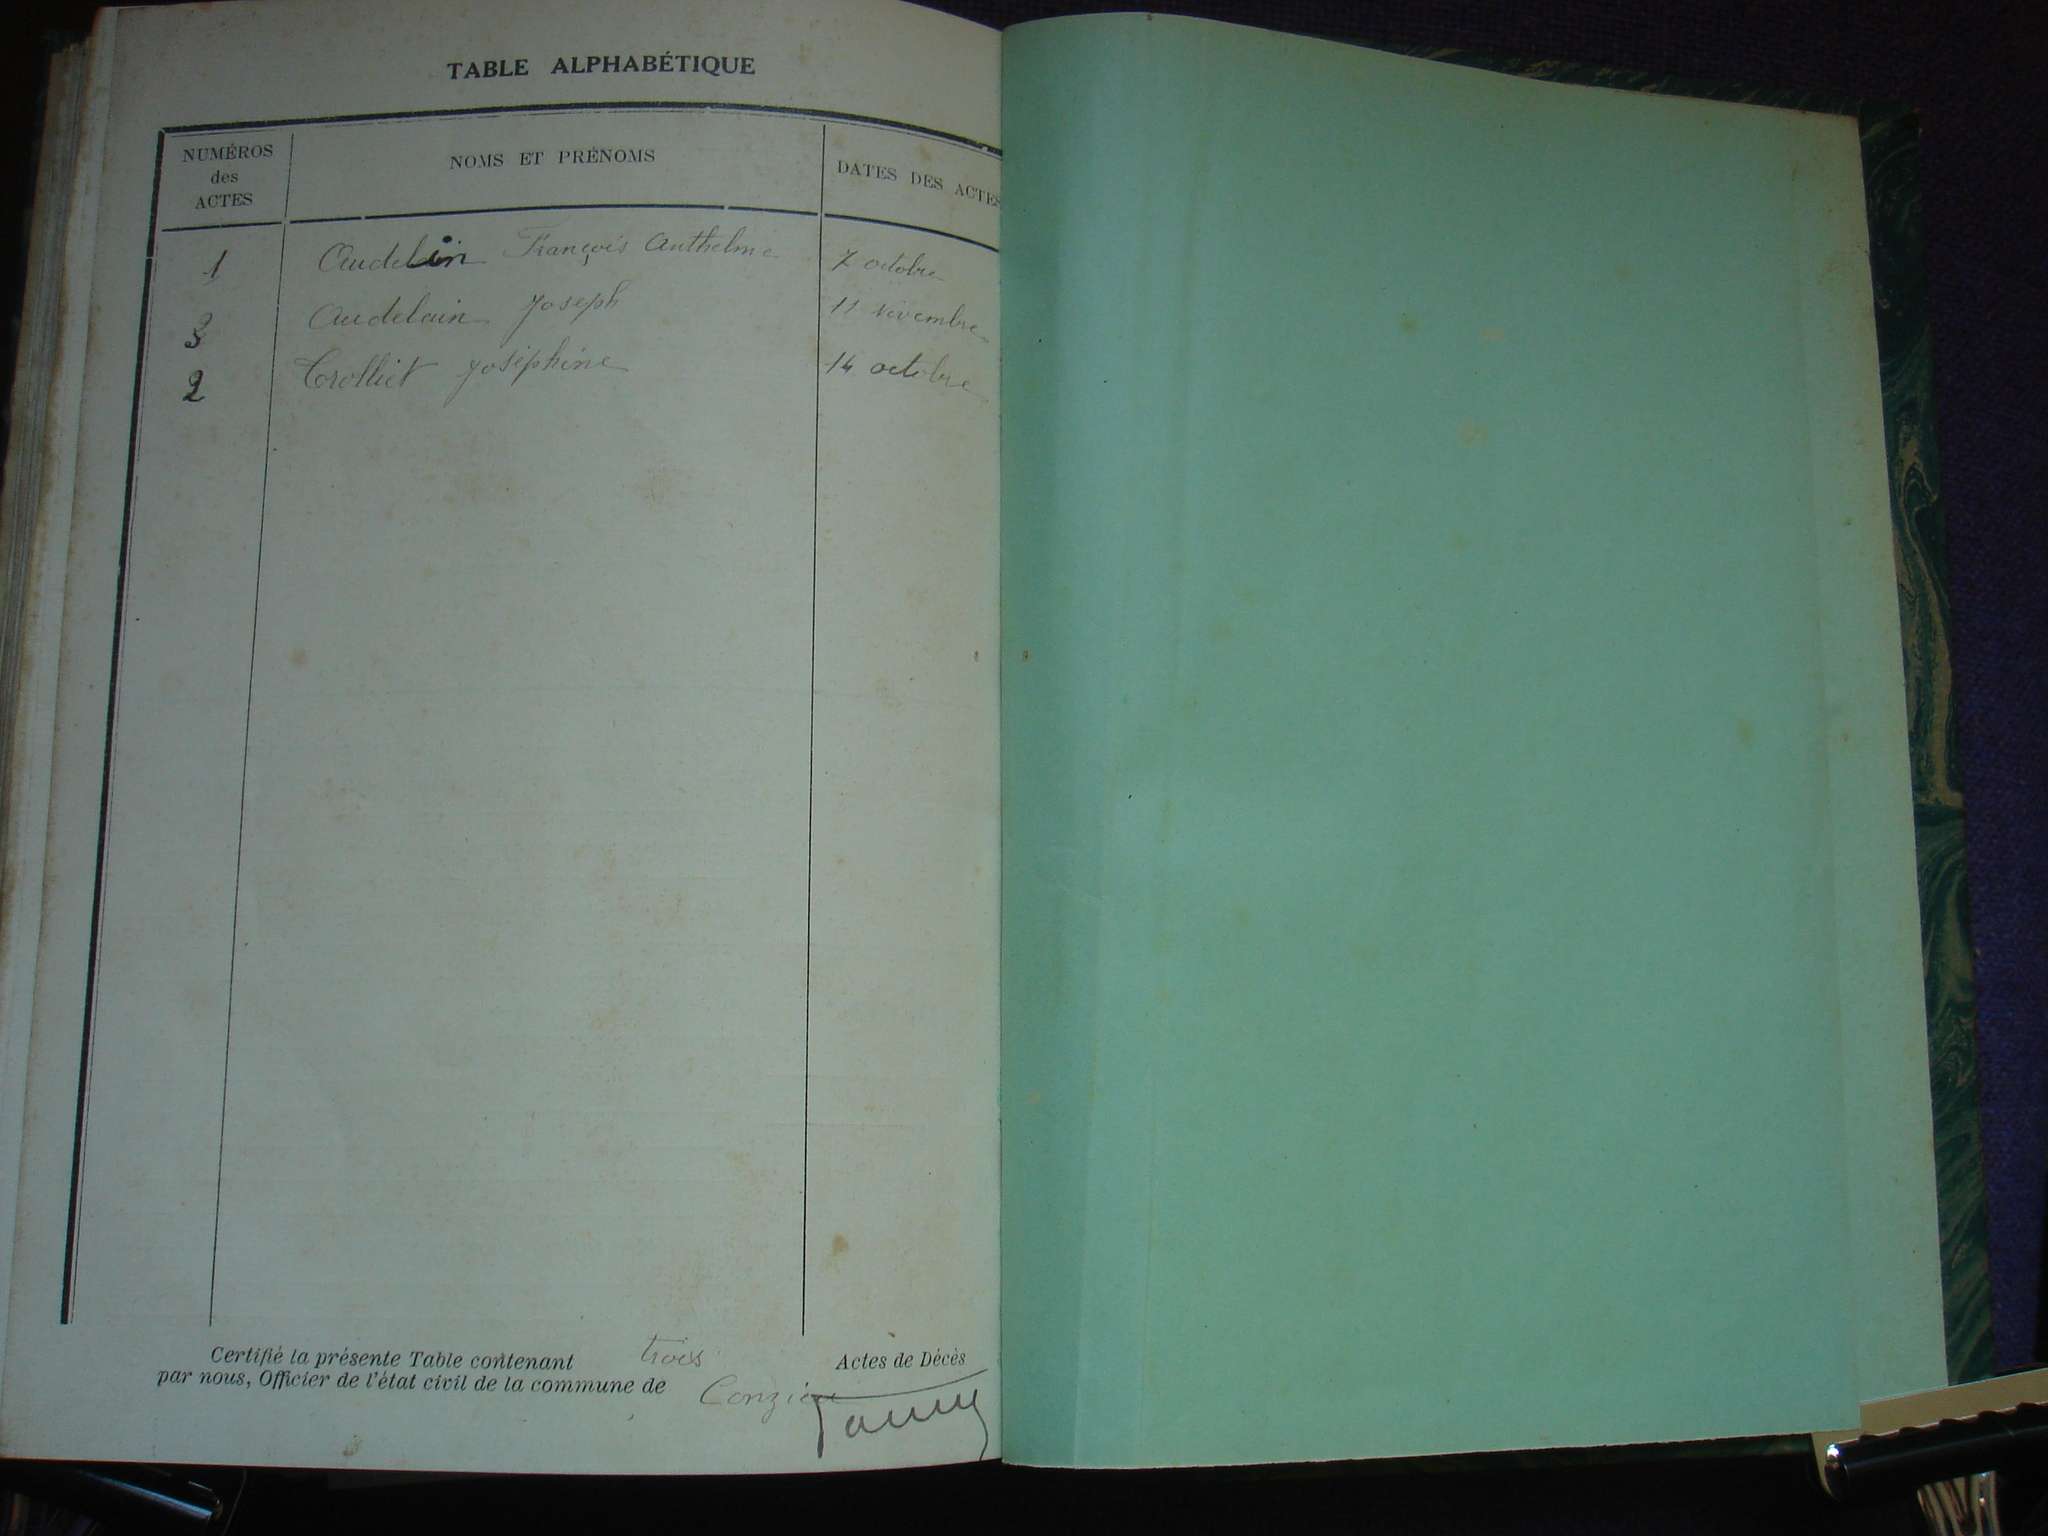 TABLE ALPHABÉTIQUE
NUMÉROS des ACTES
NOMS ET PRÉNOMS
DATES DES ACTES
1 Audelin François Anthelme 7 octobre
3 Audelain Joseph 11 novembre
2 Trolliet Joséphine 14 octobre
Certifié la présente Table contenant trois Actes de Décès
par nous, Officier de l'état civil de la commune de Conzieu